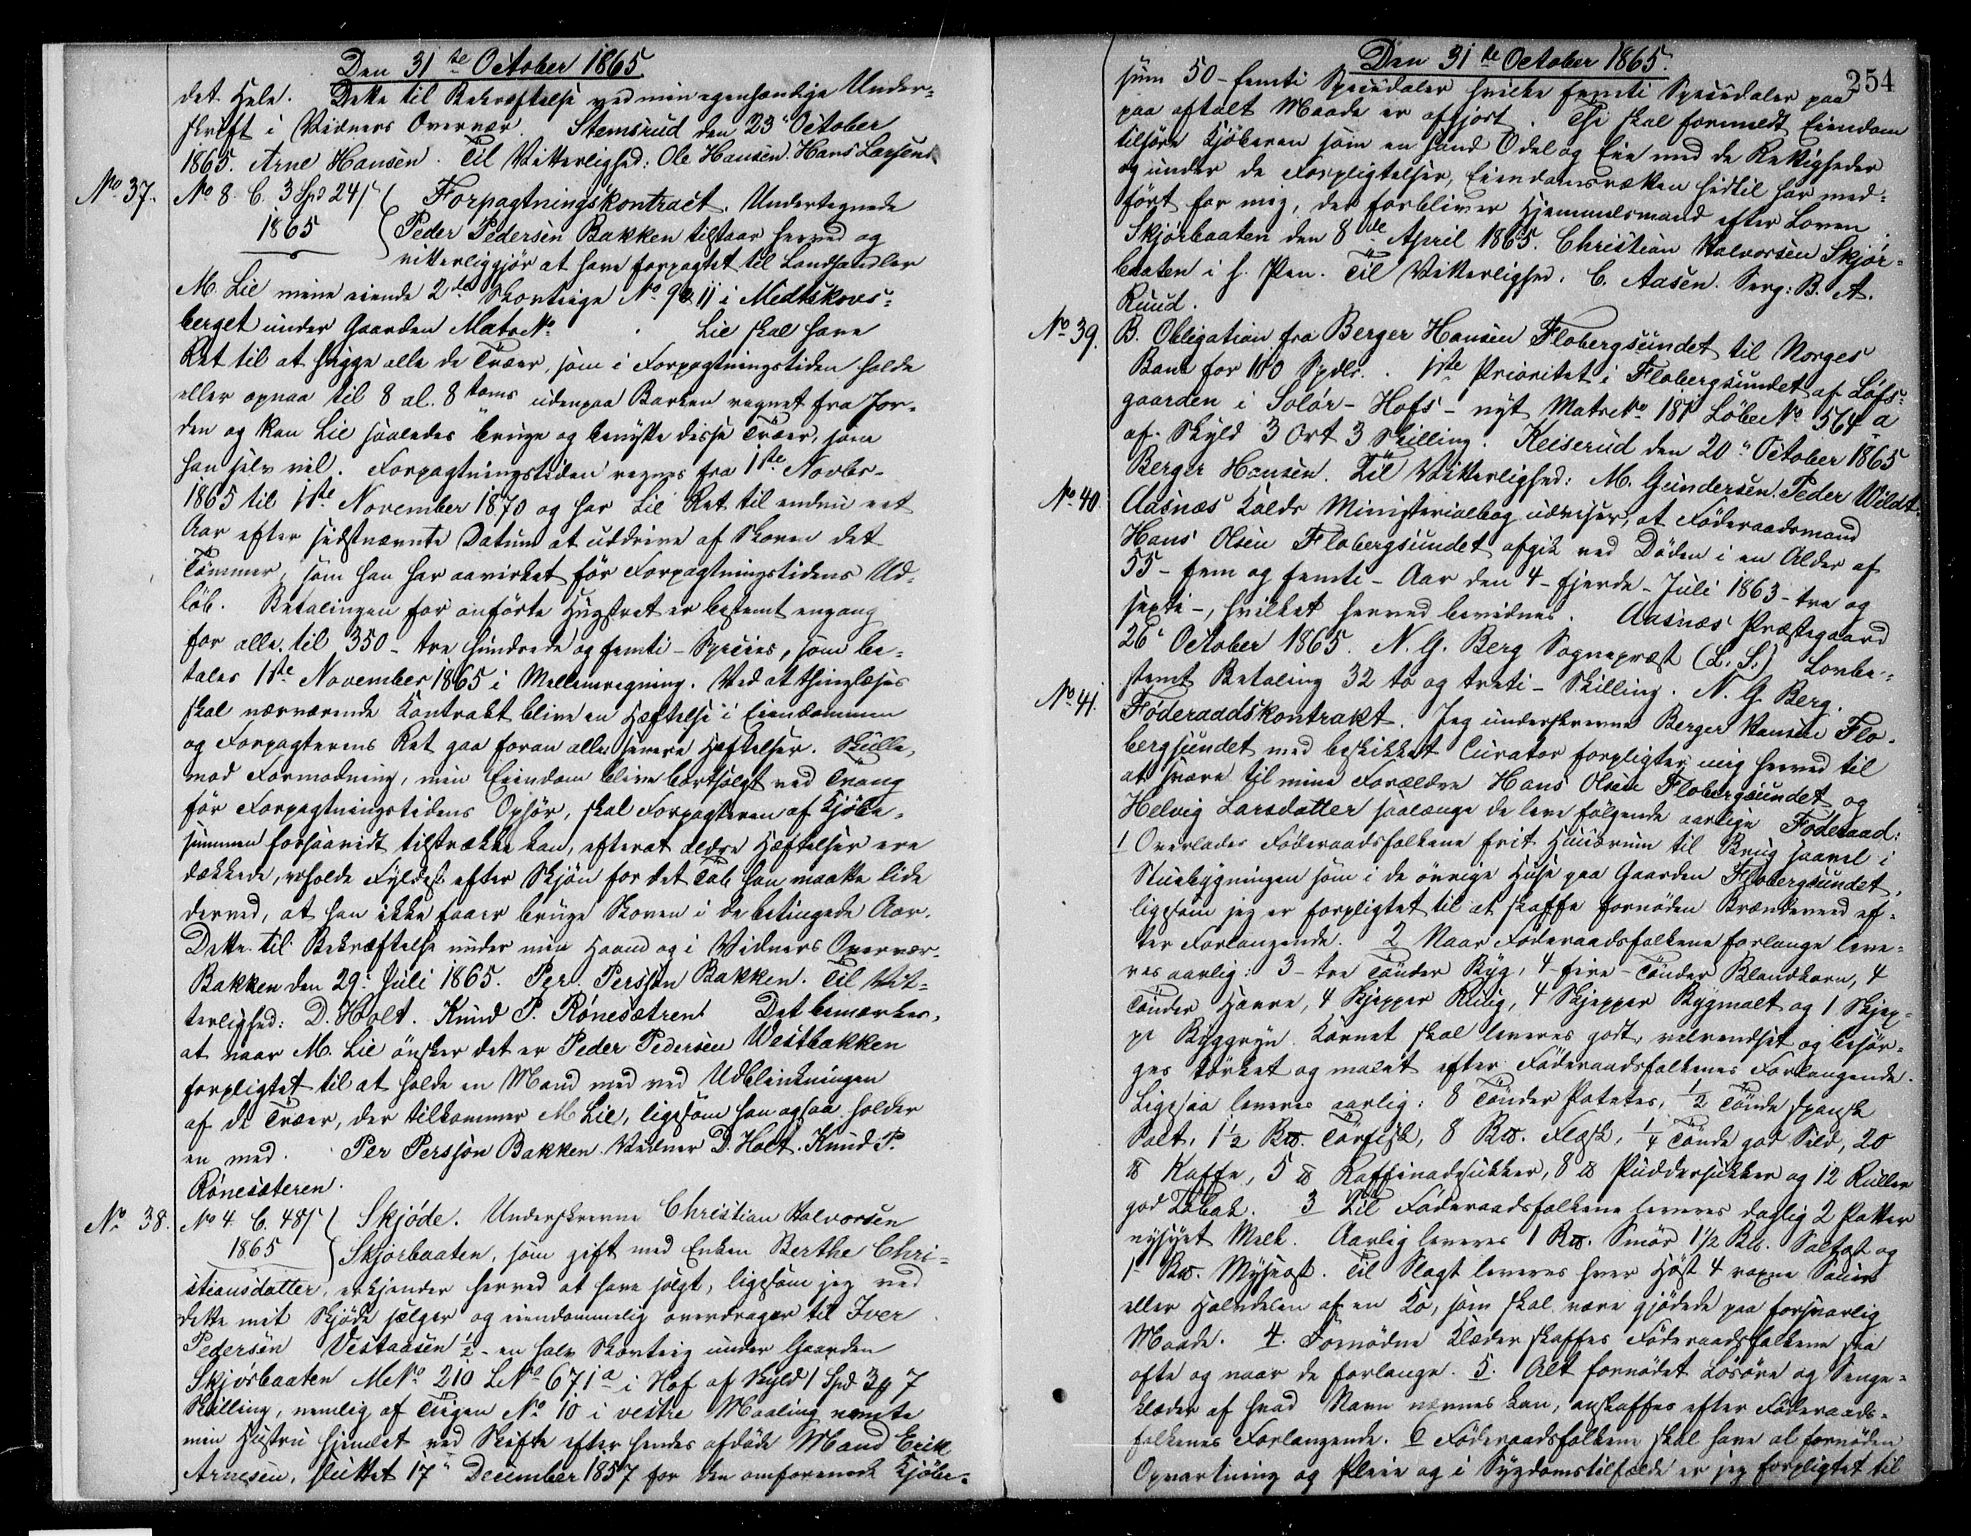 Den 31te October 1865
det Hele. Dette til Bekræftelse ved min egenhændige Under-
skrift i Vidners Overvær. Stemsrud den 23de October
1865. Arne Hansen. Til Vitterlighed: Ole Hansen. Hans Larsen.
No 37. No 8. C. 3 Spd 24 s Forpagtningskontract. Undertegnede
1865 Peder Pedersen Bakken tilstaar herved og
vitterliggjör at have forpagtet til Landhandler
M. Lie mine eiende 2de Skovteige No 9 & 11 i Medtskovs-
berget under Gaarden Matr No . Lie skal have
Ret til at hugge alle de Træer, som i Forpagtningstiden holde
eller opnaa til 8 al. 8 toms udenpaa Barken regnet fra Jor-
den og kan Lie saaledes bruge og benytte disse Træer, som
han selv vil. Forpagtningstiden regnes fra 1ste Novbr.
1865 til 1ste November 1870 og har Lie Ret til endnu eet
Aar efter sidstnævnte Datum at uddrive af Skoven det
Tömmer, som han har aavirket för Forpagtningstidens Ud-
löb. Betalingen for anförte Hugstret er bestemt engang
for alle til 350 - tre hundrede og femti - Species, som be-
tales 1ste November 1865 i Mellemregning. Ved at thinglæses
skal nærværende Kontrakt blive en Hæftelse i Eiendommen
og Forpagterens Ret gaa foran alle senere Hæftelser. Skulle,
mod Formodning, min Eiendom blive bortsolgt ved Tvang
för Forpagtningstidens Ophör, skal Forpagteren af Kjöbe-
summen forsaavidt tilstrække kan, efterat ældre Hæftelser ere
dækkede, erholde Fyldest efter Skjön for det Tab han maatte lide
derved, at han ikke faaer bruge Skoven i de betingede Aar.
Dette til Bekræftelse under min Haand og i Vidners Overvær.
Bakken den 29de Juli 1865. Per. Persson Bakken. Til Vit-
terlighed: D. Holt. Knud P. Rönesætren. Det bemærkes,
at naar M. Lie önsker det er Peder Pedersen Westbakken
forpligtet til at holde en Mand med ved Udblinkningen
af de Træer, der tilkommer M Lie, ligesom han ogsaa holder
en med. Per Persson Bakken. Vidner D. Holt. Knud P.
Rönesæteren.
No 38. No 4. C. 48 s Skjöde. Underskrevne Christian Halvorsen
1865 Skjörbaaten, som gift med Enken Berthe Chri-
stiansdatter, erkjender herved at have solgt, ligesom jeg ved
dette mit Skjöde sælger og eiendommelig overdrager til Iver
Pedersen Vestaasen 1/2 - en halv Skovteig under Gaarden
Skjörbaaten M No 210 L No 671 a i Hof af Skyld 1 Spd 3 7
Skilling, nemlig af Teigen No 10 i vestre Maaling nævnte
min Hustru hjemlet ved Skifte efter hendes afdöde Mand Erik
Arnesen, sluttet 17de December 1857 for den omforenede Kjöbe-
254
Den 31te October 1865.
sum 50 - femti Speciedaler hvilke femti Speciedaler paa
paa aftalt Maade er afgjort. Thi skal formeldt Eiendom
tilhöre Kjöberen som en sand Odel og Eie med de Rettigheder
og under de Forpligtelser, Eiendomsretten hidtil har med-
fört for mig, der forbliver Hjemmelsmand efter Loven.
Skjörbaaten den 8de April 1865. Christian Halvorsen Skjör-
baaten i h. Pen. Til Vitterlighed. C. Aasen. Serg: B. A.
Ruud.
No 39. B. Obligation fra Berger Hansen Flobergsundet til Norges
Bank for 100 Spdlr. 1ste Prioritet i Flobergsundet af Löfs-
gaarden i Solör - Hofs - nyt Matr No 181 Löbe No 564 a
af Skyld 3 Ort 3 Skilling. Keiserud den 20de October 1865
Berger Hansen. Til Vitterlighed: M. Gundersen. Peder Wildt.
No 40 Aasnæs Kalds Ministerialbog udviser, at Föderaadsmand
Hans Olsen Flobergsundet afgik ved Döden i en Alder af
55 - fem og femti - Aar den 4 - fjerde - Juli 1863 - tre og
sexti -, hvilket herved bevidnes. Aasnæs Præstegaard
26de October 1865. N. G. Berg Sognepræst (L. S.) Lovbe-
stemt Betaling 32 to og treti - Skilling. N. G. Berg.
No 41. Föderaadskontrakt. Jeg underskrevne Berger Hansen Flo-
bergsundet med beskikket Curator forpligter mig herved til
at svare til mine Forældre Hans Olsen Flobergsundet og
Helvig Larsdatter saalænge de leve fölgende aarlige Föderaad:
1 Overlades Föderaadsfolkene frit Huusrum til Brug saavel i
Stuebygningen som i de övrige Huse paa Gaarden Flobergsundet,
ligesom jeg er forpligtet til at skaffe fornöden Brændeveed ef-
ter Forlangende. 2 Naar Föderaadsfolkene forlange leve-
res aarlig: 3 - tre Tönder Byg, 4 - fire - Tönder Blandkorn, 4
Tönder Havre, 4 Skjepper Rug, 4 Skjepper Bygmalt og 1 Skjep-
pe Byggryn. Kornet skal leveres godt, velrendset og besör-
ges törket og malet efter Föderaadsfolkenes Forlangende.
Ligesaa leveres aarlig: 8 Tönder Potetes, 1/2 Tönde spansk
Salt, 1 1/2 B℔. Törfisk, 8 B℔. Flesk, 1/4 Tönde god Sild, 20
℔ Kaffe, 5 ℔ Raffinadsukker, 8 ℔ Puddersukker og 12 Ruller
god Tobak. 3 Til Föderaadsfolkene leveres daglig 2 Potter
nysiet Melk. Aarlig leveres 1 B℔. Smör 1 1/2 B℔. Saltost og
1 B℔. Mysost. Til Slagt leveres hver Höst 4 voxne Sauer
eller Halvdelen af en Ko, som skal være gjödede paa forsvarlig
Maade. 4. Fornödne Klæder skaffes Föderaadsfolkene saa
ofte og naar de forlange. 5. Alt fornödet Lösöre og Senge-
klæder af hvad Navn nævnes kan, anskaffes efter Föderaads-
folkenes Forlangende. 6 Föderaadsfolkene skal have al fornöden
Opvartning og Pleie og i Sygdomstilfælde er jeg forpligtet til